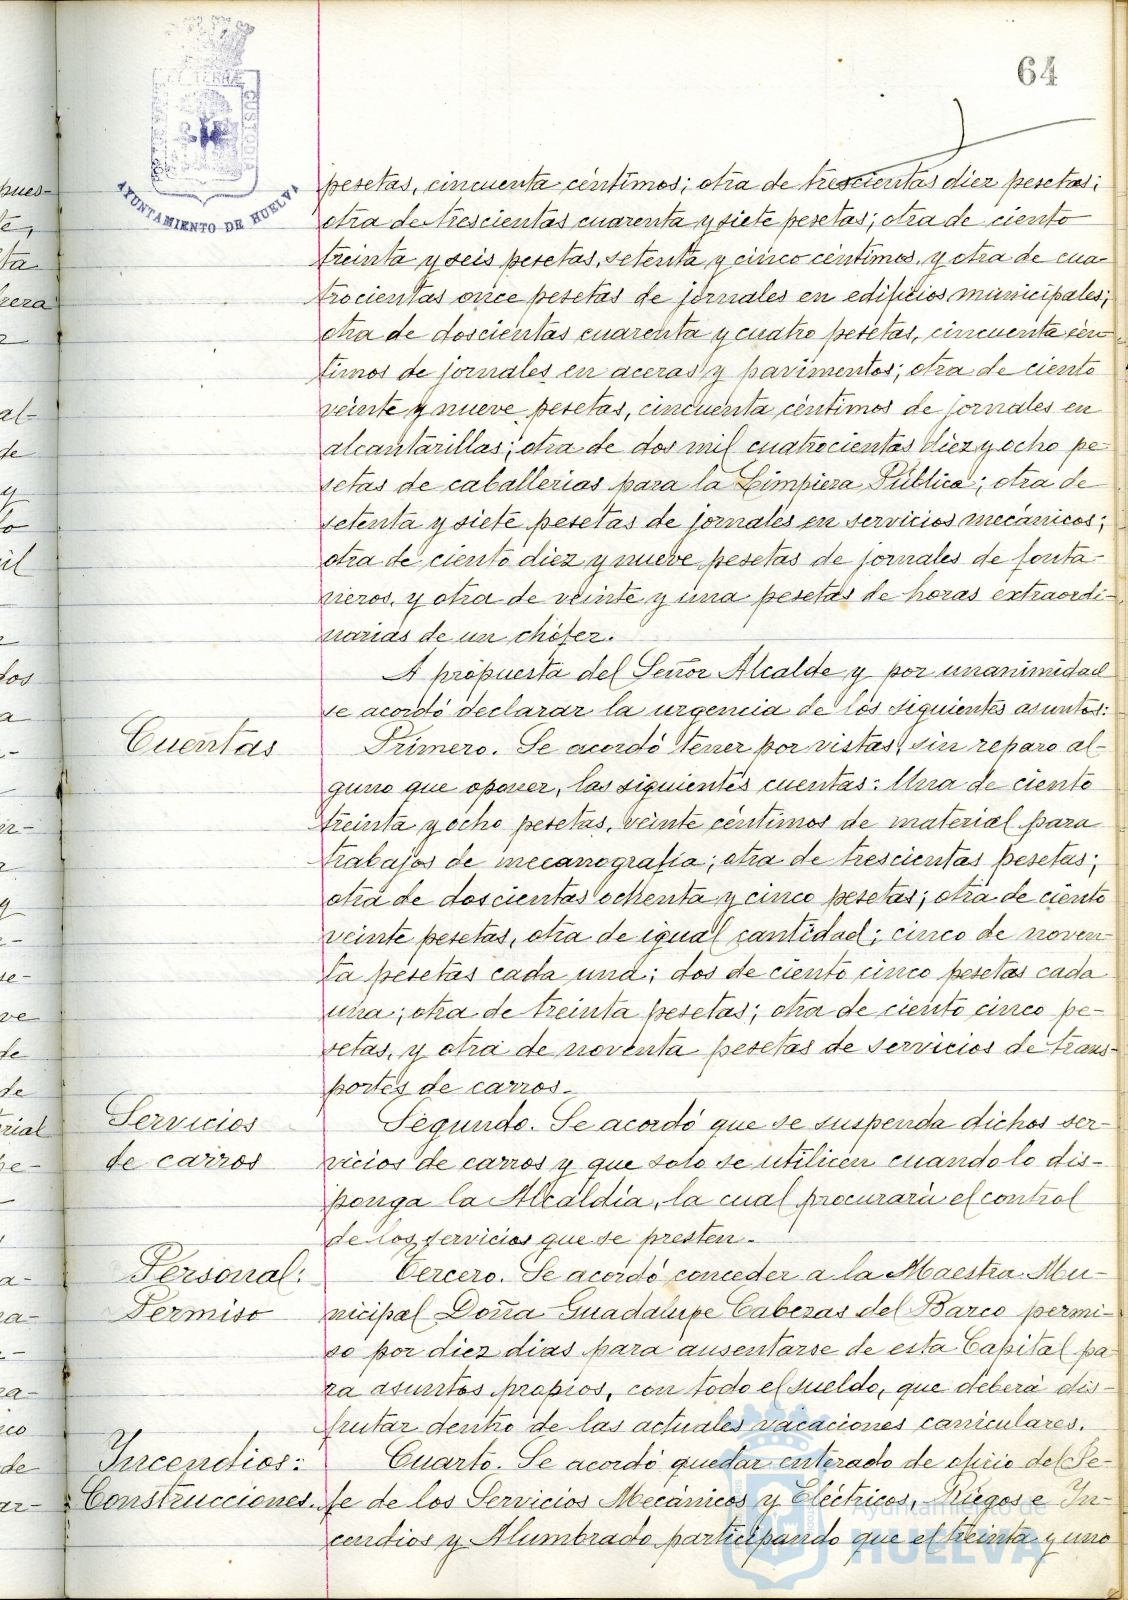 64
TERRÆ
CUSTODIA
AYUNTAMIENTO DE HUELVA
pesetas, cincuenta céntimos; otra de trescientas diez pesetas;
otra de trescientas cuarenta y siete pesetas; otra de ciento
treinta y seis pesetas, setenta y cinco céntimos, y otra de cua-
trocientas once pesetas de jornales en edificios municipales;
otra de doscientas cuarenta y cuatro pesetas, cincuenta cén-
timos de jornales en aceras y pavimentos; otra de ciento
veinte y nueve pesetas, cincuenta céntimos de jornales en
alcantarillas; otra de dos mil cuatrocientas diez y ocho pe-
setas de caballerias para la Limpieza Pública; otra de
setenta y siete pesetas de jornales en servicios mecánicos;
otra de ciento diez y nueve pesetas de jornales de fonta-
neros, y otra de veinte y una pesetas de horas extraordi-
narias de un chófer.
A propuesta del Señor Alcalde y por unanimidad
se acordó declarar la urgencia de los siguientes asuntos:
Cuentas
Primero. Se acordó tener por vistas, sin reparo al-
guno que oponer, las siguientes cuentas: Una de ciento
treinta y ocho pesetas, veinte céntimos de material para
trabajos de mecanografía; otra de trescientas pesetas;
otra de doscientas ochenta y cinco pesetas; otra de ciento
veinte pesetas, otra de igual cantidad; cinco de noven-
ta pesetas cada una; dos de ciento cinco pesetas cada
una; otra de treinta pesetas; otra de ciento cinco pe-
setas, y otra de noventa pesetas de servicios de trans-
portes de carros.
Servicios
de carros
Segundo. Se acordó que se suspenda dichos ser-
vicios de carros y que solo se utilicen cuando lo dis-
ponga la Alcaldía, la cual procurará el control
de los servicios que se presten.
Personal:
Permiso
Tercero. Se acordó conceder a la Maestra Mu-
nicipal Doña Guadalupe Cabezas del Barco permi-
so por diez dias para ausentarse de esta Capital pa-
ra asuntos propios, con todo el sueldo, que deberá dis-
frutar dentro de las actuales vacaciones caniculares.
Incendios:
Construcciones.
Cuarto. Se acordó quedar enterado de oficio del Je-
fe de los Servicios Mecánicos y Eléctricos, Riegos e In-
cendios y Alumbrado participando que el treinta y uno
Ayuntamiento de
HUELVA